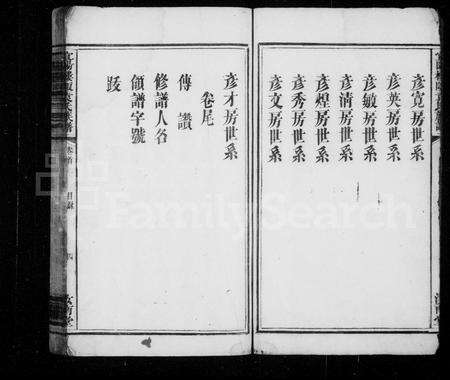 彥寬房世系
彥英房世系
彥敏房世系
彥清房世系
彥煌房世系
彥秀房世系
彥文房世系
彥才房世系
卷尾
傳 讚
修譜人名
領譜字號
跋
卷首
目錄
FamilySearch